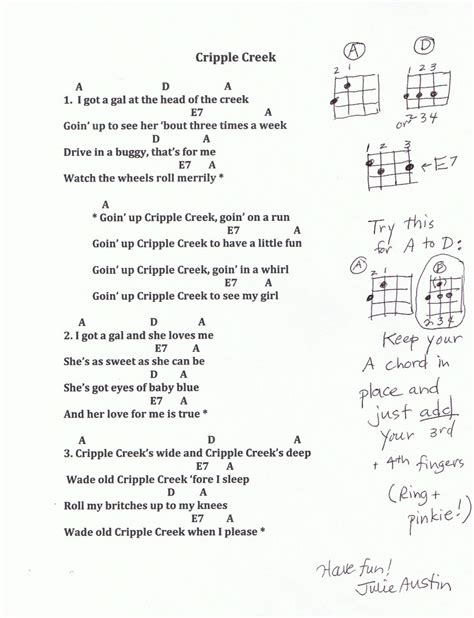 Cripple Creek
A D A
1. I got a gal at the head of the creek
E7 A
Goin' up to see her 'bout three times a week
D A
Drive in a buggy, that's for me
E7 A
Watch the wheels roll merrily *
A
* Goin' up Cripple Creek, goin' on a run
E7 A
Goin' up Cripple Creek to have a little fun
Goin' up Cripple Creek, goin' in a whirl
E7 A
Goin' up Cripple Creek to see my girl
A D A
2. I got a gal and she loves me
E7 A
She's as sweet as she can be
D A
She's got eyes of baby blue
E7 A
And her love for me is true *
A D A
3. Cripple Creek's wide and Cripple Creek's deep
E7 A
Wade old Cripple Creek 'fore I sleep
D A
Roll my britches up to my knees
E7 A
Wade old Cripple Creek when I please *
A D
2 1 1 2 3
or 2 3 4
1 2 3
← E7
Try this
for A to D:
A D
2 1
2 3 4
Keep your
A chord in
place and
just add
your 3rd
+ 4th fingers
(Ring +
pinkie!)
Have fun!
Julie Austin